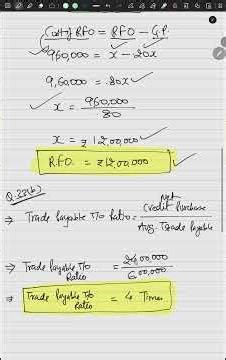 Cost of RFO = RFO - G.P.
960,000 = x - .20x
9,60,000 = .80x
x = 960,000 / 80
x = ₹ 12,00,000
RFO. = ₹12,00,000
Q.23(b)
⇒ Trade Payable T/o Ratio = Net Credit Purchase / Avg. Trade Payable
⇒ Trade Payable T/o Ratio = 24,00,000 / 6,00,000
⇒ Trade Payable T/o Ratio = 4 Times